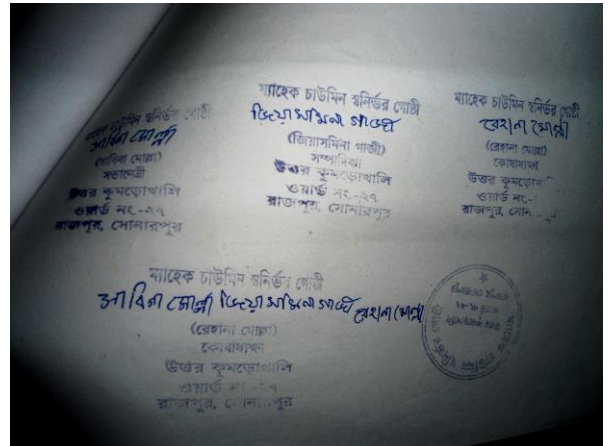 ম্যাহেক চাউমিন স্বনির্ভর গোষ্ঠী
সাবিনা মোল্লা
(সাবিনা মোল্লা)
সভানেত্রী
উত্তর কুমড়োখালি
ওয়ার্ড নং-২৭
রাজপুর, সোনারপুর
ম্যাহেক চাউমিন স্বনির্ভর গোষ্ঠী
জিয়াসমিনা গাজী
(জিয়াসমিনা গাজী)
সম্পাদিকা
উত্তর কুমড়োখালি
ওয়ার্ড নং-২৭
রাজপুর, সোনারপুর
ম্যাহেক চাউমিন স্বনির্ভর গোষ্ঠী
রেহানা মোল্লা
(রেহানা মোল্লা)
কোষাধ্যক্ষা
উত্তর কুমড়োখালি
ওয়ার্ড নং-
রাজপুর, সোনা
ম্যাহেক চাউমিন স্বনির্ভর গোষ্ঠী
সাবিনা মোল্লা জিয়াসমিনা গাজী রেহানা মোল্লা
(রেহানা মোল্লা)
কোষাধ্যক্ষা
উত্তর কুমড়োখালি
ওয়ার্ড নং-২৭
রাজপুর, সোনারপুর